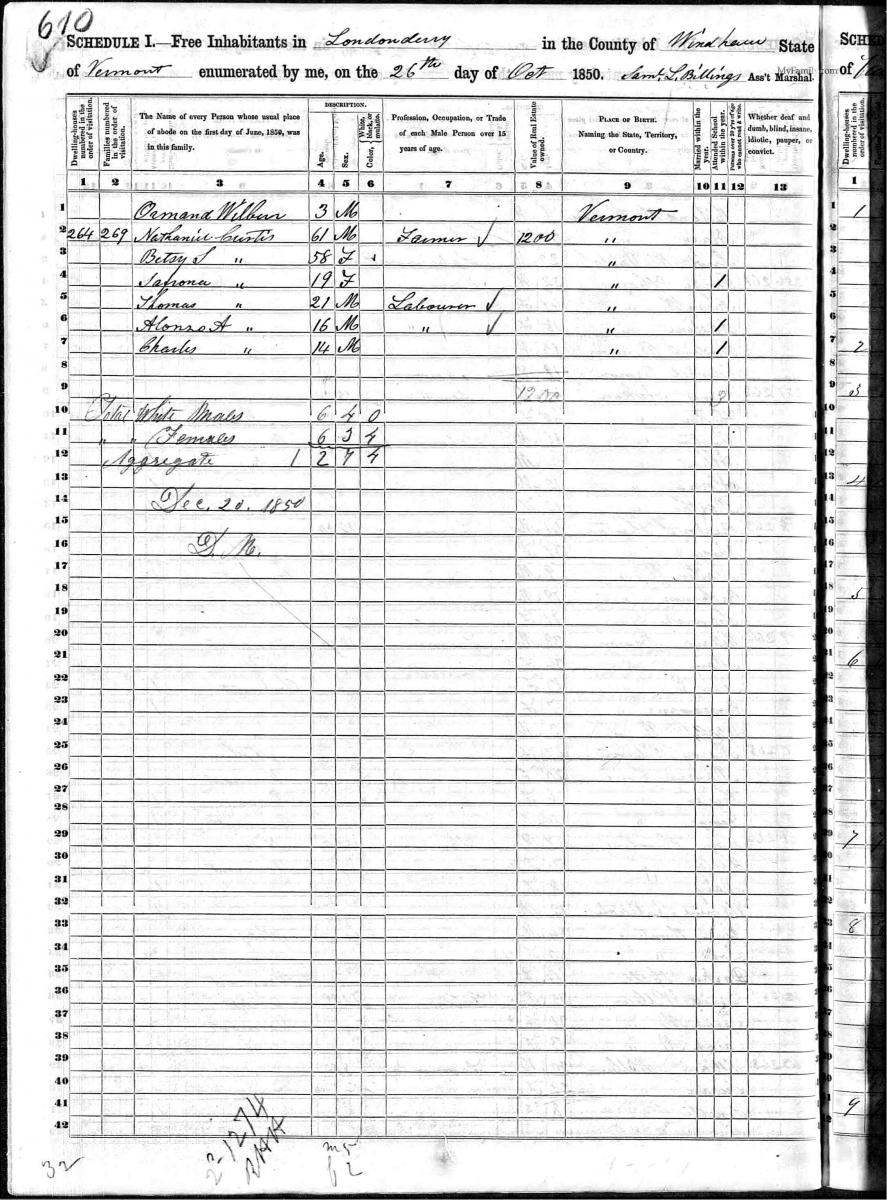 610
SCHEDULE I.—Free Inhabitants in Londonderry in the County of Windham State
of Vermont enumerated by me, on the 26th day of Oct 1850. Saml. L. Billings Ass't Marshal.
MyFamily.com
Dwelling-houses numbered in the order of visitation.
Families numbered in the order of visitation.
The Name of every Person whose usual place of abode on the first day of June, 1850, was in this family.
DESCRIPTION.
Age.
Sex.
Color, { White, black, or mulatto.
Profession, Occupation, or Trade of each Male Person over 15 years of age.
Value of Real Estate owned.
PLACE OF BIRTH. Naming the State, Territory, or Country.
Married within the year.
Attended School within the year.
Persons over 20 y'rs of age who cannot read & write.
Whether deaf and dumb, blind, insane, idiotic, pauper, or convict.
1 2 3 4 5 6 7 8 9 10 11 12 13
1 Ormand Wilbur 3 M Vermont
2 264 269 Nathaniel Curtis 61 M Farmer ✓ 1200 "
3 Betsy S " 58 F "
4 Safrona " 19 F " 1
5 Thomas " 21 M Labourer ✓ "
6 Alonzo A " 16 M " ✓ " 1
7 Charles " 14 M " 1
8
9 1200 3
10 Total White Males 6 4 0
11 " " Females 6 3 4
12 Aggregate 1 2 7 4
13
14 Dec. 20. 1850
15
16 D. M.
17
18
19
20
21
22
23
24
25
26
27
28
29
30
31
32
33
34
35
36
37
38
39
40
41
42
32
2-1274
62
SCHED
of
Dwelling-houses numbered in the order of visitation.
1
1
2
3
4
5
6
7
8
9